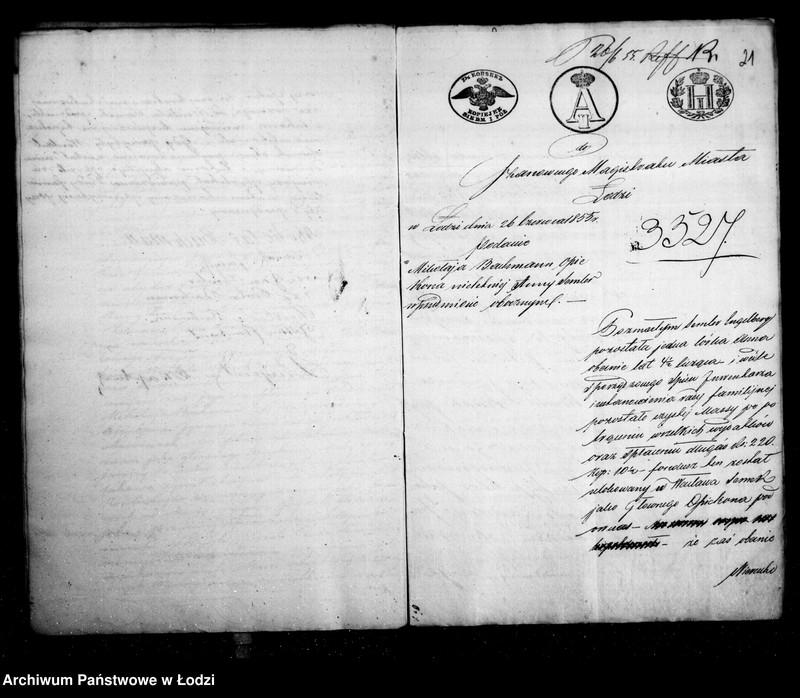 26/6 55.
21
7½ KOPIEJEK
SREBR: I PÓŁ
do
Szanownego Magistratu Miasta
Łodzi
w Łodzi dnia 26 Czerwca 1855 r.
Podanie
Mikołaja Bachmann, Opie
kuna nieletniej Anny Semler
w przedmiocie obocznym. —
N 3527.
Po zmarłym Semler Engelberg
pozostała jedna córka Anna
obecnie lat 4½ licząca – i wedle
sporządzonego spisu Inwentarza
i ustanowienia rady familijnej
pozostało czystej Massy po po
trąceniu wszelkich wydatków
oraz spłaceniu długów rs: 220.
kop: 10½ – fundusz ten został
ulokowany u Wacława Semek
jako Głównego Opiekuna pod
– że zaś obecnie
Archiwum Państwowe w Łodzi